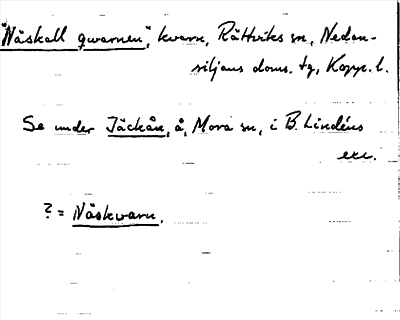 "Näskall qwarnen", kvarn, Rättviks sn, Nedan-
siljans doms. tg, Kopp. l.
Se under Jäckån, å, Mora sn, i B. Lindéns
exc.
? = Näskvarn.